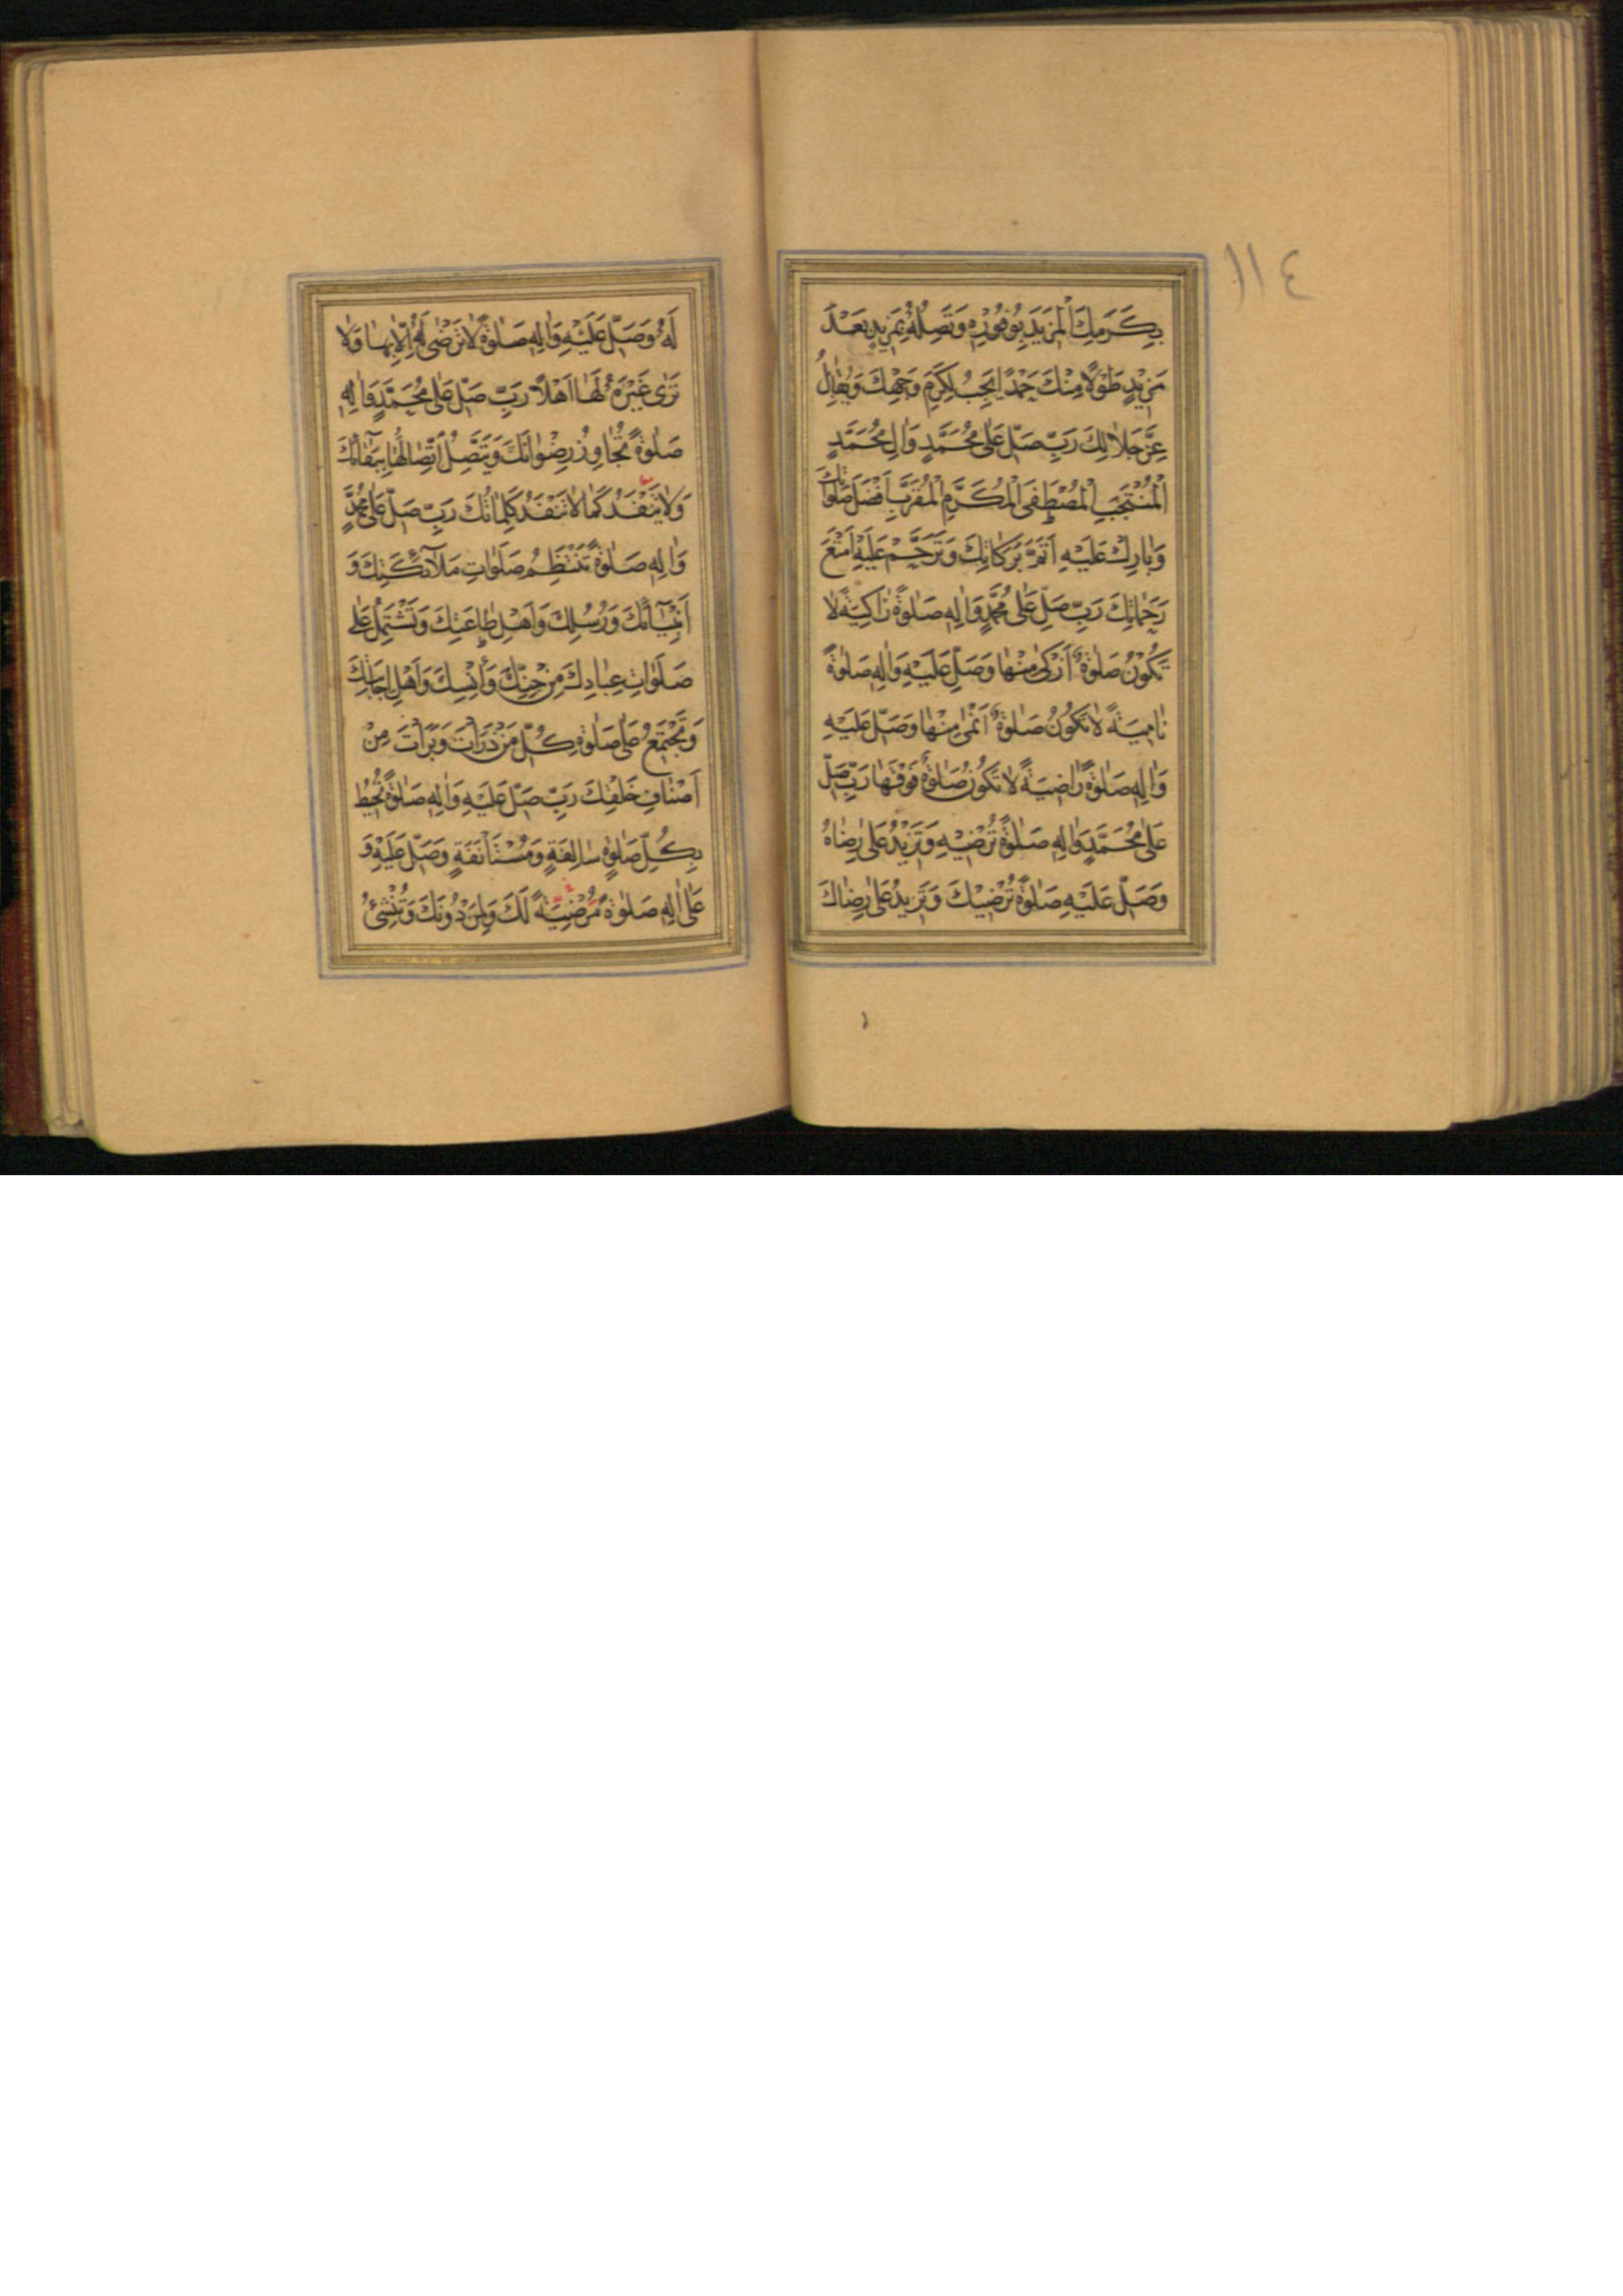 ١١٤
بِكَرَمِكَ الْمَزِيدَ بِوُفُورِهِ وَتَصِلُهُ بِمَزِيدٍ بَعْدَ
مَزِيْدٍ طَوْلًا مِنْكَ حَمْدًا يَجِبُ لِكَرَمِ وَجْهِكَ وَيُقَابِلُ
عِزَّ جَلَالِكَ رَبِّ صَلِّ عَلَى مُحَمَّدٍ وَاٰلِ مُحَمَّدٍ
الْمُنْتَجَبِ الْمُصْطَفَى الْمُكَرَّمِ الْمُقَرَّبِ اَفْضَلَ صَلَوَاتِكَ
وَبَارِكْ عَلَيْهِ اَتَمَّ بَرَكَاتِكَ وَتَرَحَّمْ عَلَيْهِ اَمْتَعَ
رَحَمَاتِكَ رَبِّ صَلِّ عَلَى مُحَمَّدٍ وَاٰلِهِ صَلٰوةً زَاكِيَةً لَا
تَكُوْنُ صَلٰوةٌ اَزْكٰى مِنْهَا وَصَلِّ عَلَيْهِ وَاٰلِهِ صَلٰوةً
نَامِيَةً لَا تَكُوْنُ صَلٰوةٌ اَنْمٰى مِنْهَا وَصَلِّ عَلَيْهِ
وَاٰلِهِ صَلٰوةً رَاضِيَةً لَا تَكُوْنُ صَلٰوةٌ فَوْقَهَا رَبِّ صَلِّ
عَلَى مُحَمَّدٍ وَاٰلِهِ صَلٰوةً تُرْضِيْهِ وَتَزِيْدُ عَلَى رِضَاهُ
وَصَلِّ عَلَيْهِ صَلٰوةً تُرْضِيْكَ وَتَزِيدُ عَلَى رِضَاكَ
لَهُ وَصَلِّ عَلَيْهِ وَاٰلِهِ صَلٰوةً لَا تَرْضٰى لَهُ اِلَّا بِهَا وَلَا
تَرٰى غَيْرَهُ لَهَا اَهْلًا رَبِّ صَلِّ عَلَى مُحَمَّدٍ وَاٰلِهِ
صَلٰوةً تُجَاوِزُ رِضْوَانَكَ وَيَتَّصِلُ اتِّصَالُهَا بِبَقَائِكَ
وَلَا يَنْفَدُ كَمَا لَا تَنْفَدُ كَلِمَاتُكَ رَبِّ صَلِّ عَلَى مُحَمَّدٍ
وَاٰلِهِ صَلٰوةً تَنْتَظِمُ صَلَوَاتِ مَلَآئِكَتِكَ وَ
اَنْبِيَآئِكَ وَرُسُلِكَ وَاَهْلِ طَاعَتِكَ وَتَشْتَمِلُ عَلٰى
صَلَوَاتِ عِبَادِكَ مِنْ جِنِّكَ وَاِنْسِكَ وَاَهْلِ اِجَابَتِكَ
وَتَجْتَمِعُ عَلَى صَلٰوةِ كُلِّ مَنْ ذَرَأْتَ وَبَرَأْتَ مِنْ
اَصْنَافِ خَلْقِكَ رَبِّ صَلِّ عَلَيْهِ وَاٰلِهِ صَلٰوةً تُحِيْطُ
بِكُلِّ صَلٰوةٍ سَالِفَةٍ وَمُسْتَأْنَفَةٍ وَصَلِّ عَلَيْهِ وَ
عَلٰى اٰلِهِ صَلٰوةً مَرْضِيَّةً لَكَ وَلِمَنْ دُوْنَكَ وَتُنْشِئُ